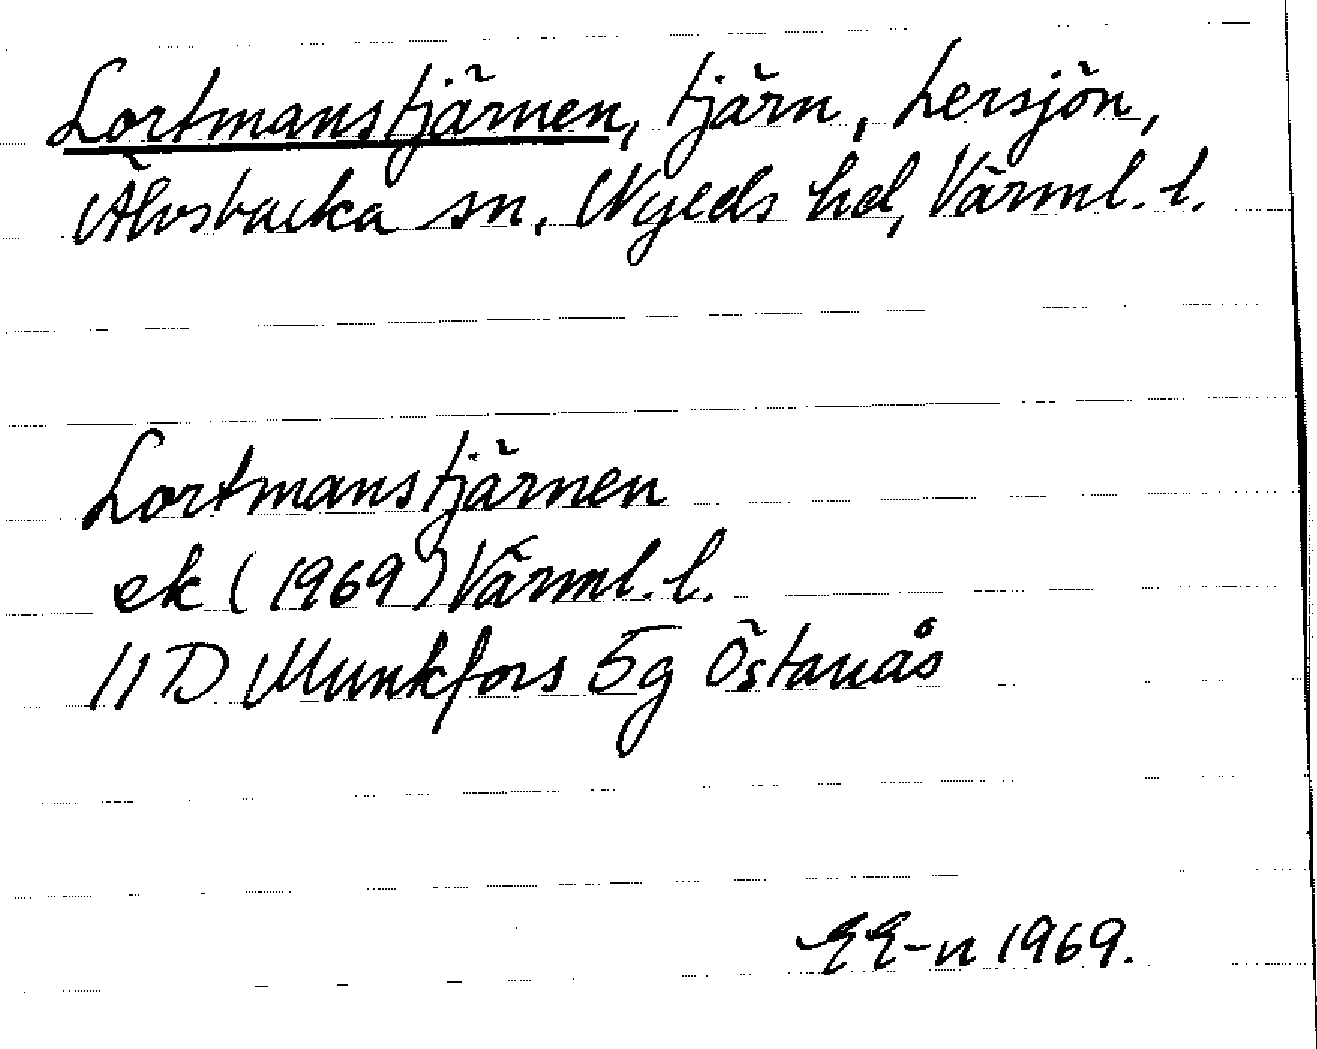 Lortmanstjärnen, tjärn, Lersjön,
Älvsbacka sn, Nyeds hd, Värml. l.
Lortmanstjärnen
ek (1969) Värml. l.
11 D Munkfors 5g Östanås
EE-n 1969.